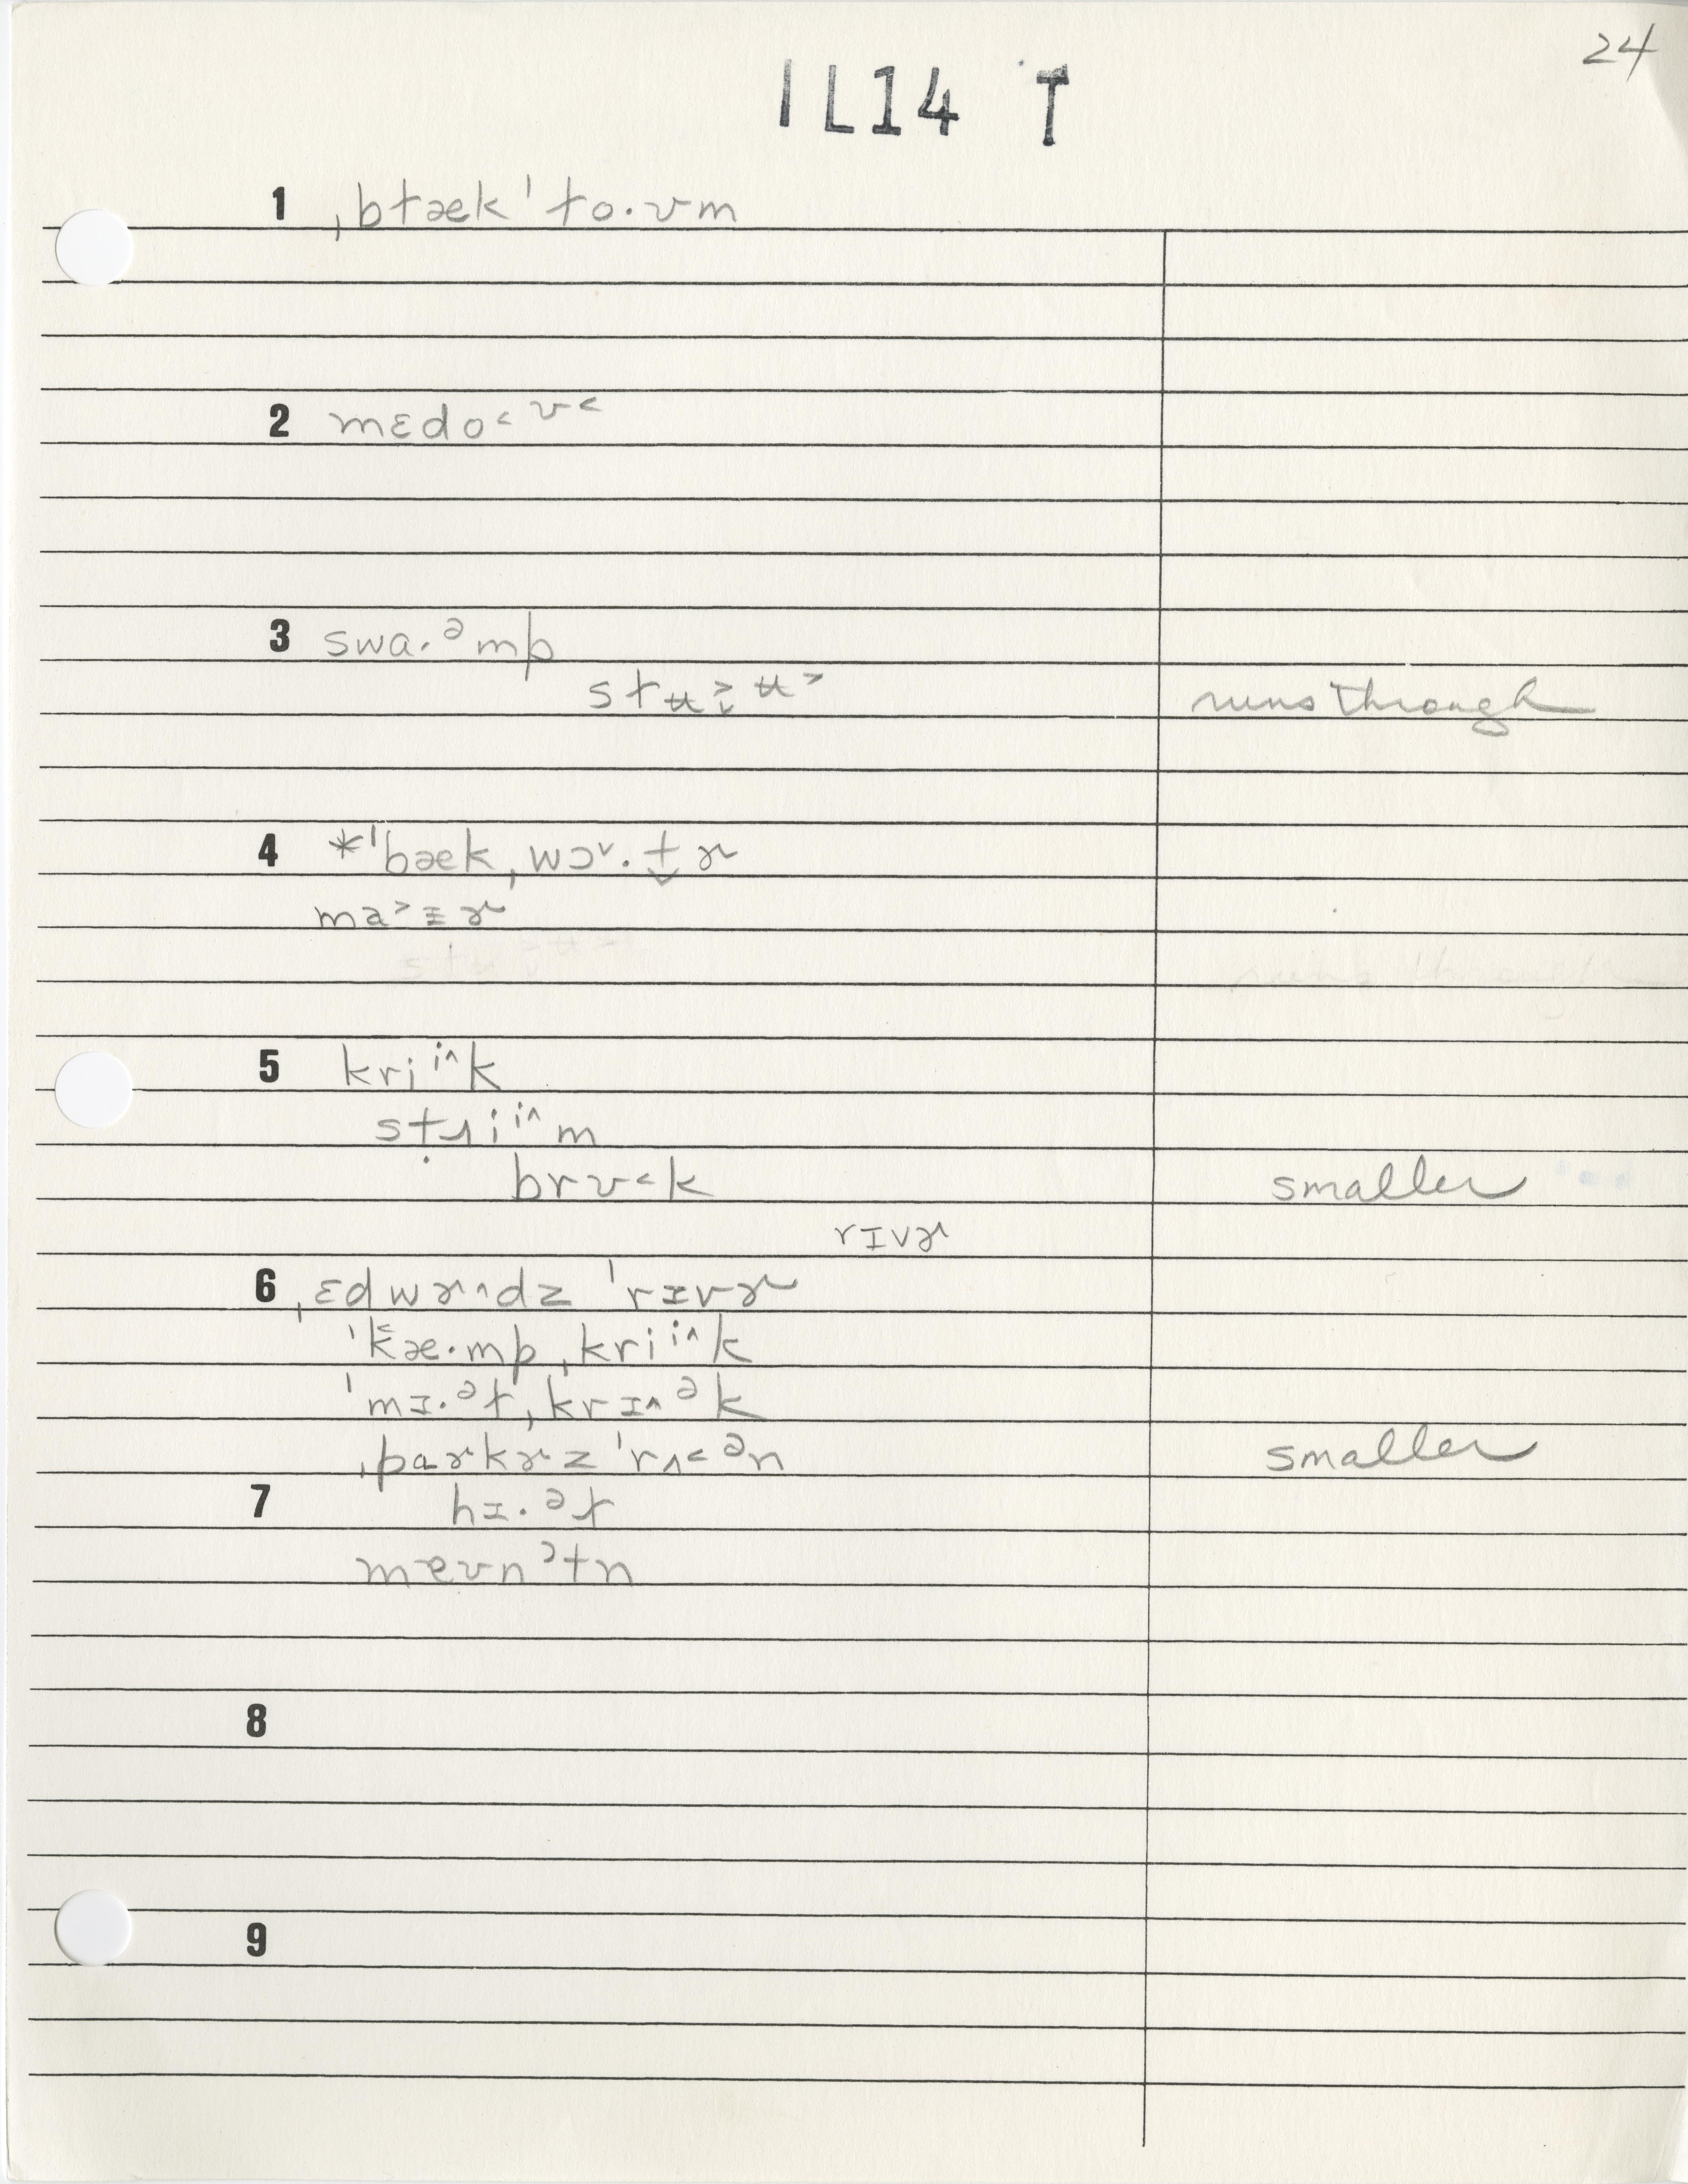 24
IL14 T
1 ˌbɫæk ˈɫo·ʊm
2 mɛdo˂ʊ˂
3 swɑ·ᵊmp
sɫʉ˃˯ʉ˃ runs through
4 *ˈbæk ˌwɔ˅·t̬ɚ
ma˃ᵻɚ
5 kriⁱ˄k
stɹ̣iⁱ˄m
brʊ˂k smaller
rɪvɚ
6 ˌɛdwɚ˄dz ˈrɪvɚ
ˈk˂æ·mp ˌkriⁱ˄k
ˈmɪ·ᵊɫ ˌkrɪ˄ᵊk
ˌpɑɚkɚz ˈrʌ˂ᵊn smaller
7 hɪ·ᵊɫ
mæʊnˀtn
8
9